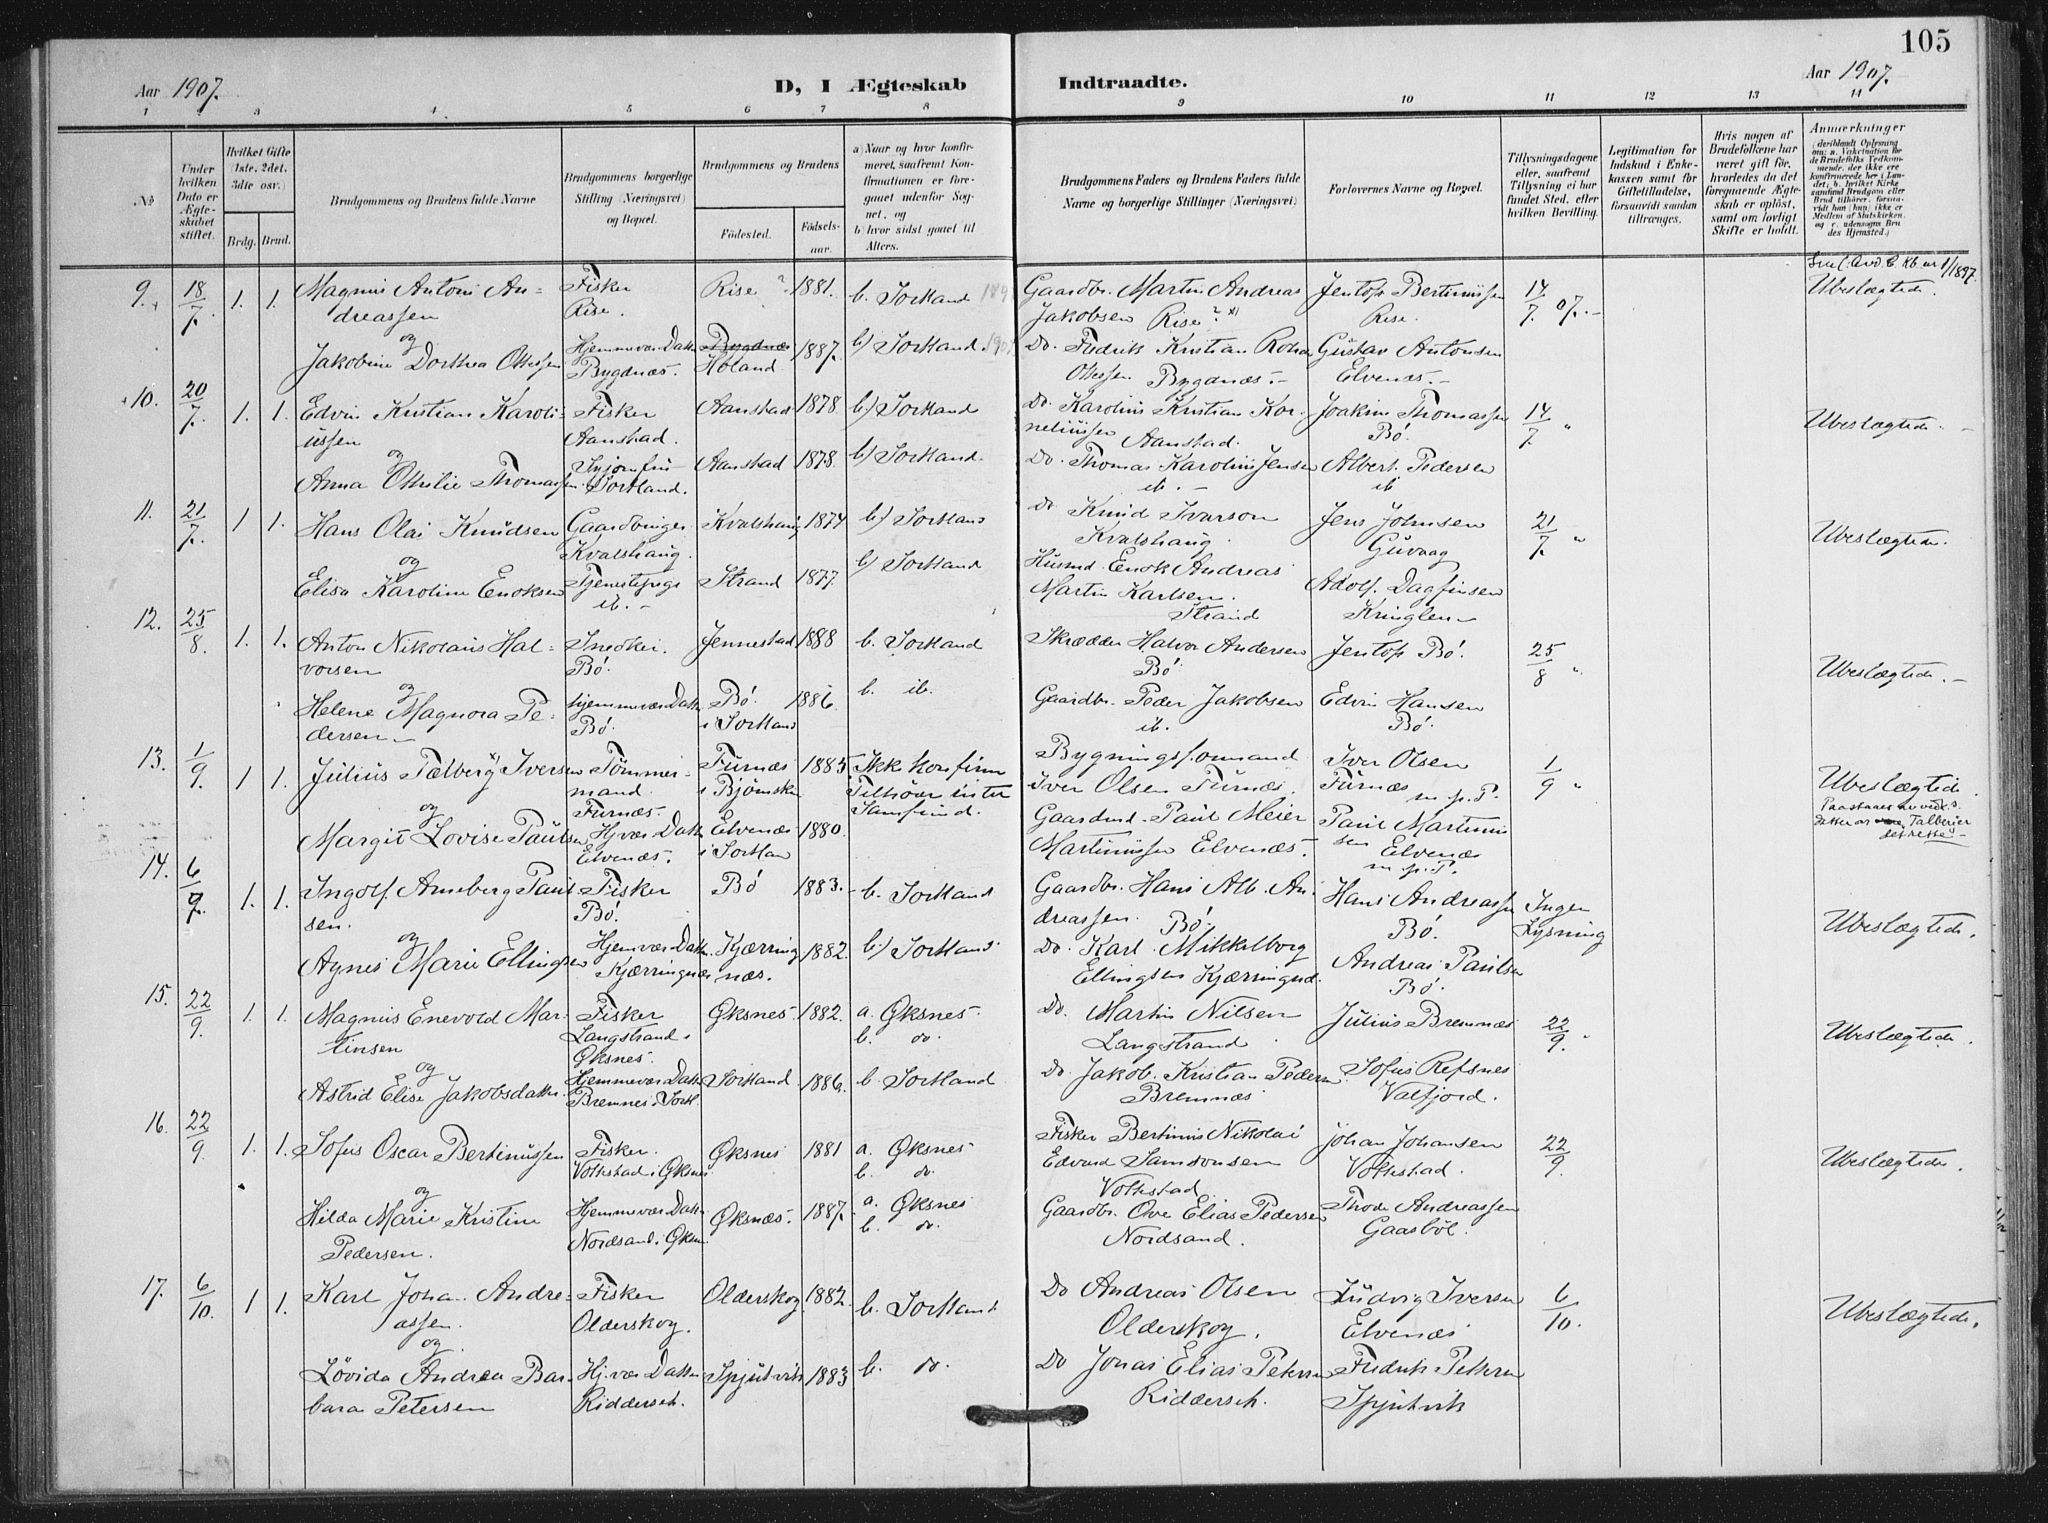 105
Aar 1907.
D, I Ægteskab
Indtraadte.
Aar 1907.
1 2 3 4 5 6 7 8 9 10 11 12 13 14
No
Under hvilken Dato er Ægteskabet stiftet.
Hvilket Gifte (1ste, 2det, 3dte osv.)
Brdg. Brud.
Brudgommens og Brudens fulde Navne
Brudgommens borgerlige Stilling (Næringsvei) og Bopæl.
Brudgommens og Brudens
Födested.
Födselsaar.
a) Naar og hvor konfirmeret, saafremt Konfirmationen er foregaaet udenfor Sognet, og
b) hvor sidst gaaet til Alters.
Brudgommens Faders og Brudens Faders fulde Navne og borgerlige Stillinger (Næringsvei)
Forlovernes Navne og Bopæl.
Tillysningsdagene eller, saafremt Tillysning ei har fundet Sted, efter hvilken Bevilling.
Legitimation for Indskud i Enkekassen samt for Giftetilladelse, forsaavidt saadan tiltrænges.
Hvis nogen af Brudefolkene har været gift før, hvorledes da det foregaaende Ægteskab er opløst, samt om lovligt Skifte er holdt.
Anmærkninger
9. 18/7. 1. 1. Magnus Antoni Andreassen Fisker Rise. Rise ? 1881. b. Sortland Gaardbr. Martin Andreas Jakobsen Rise ? x) Jentoft Bertinussen Rise. 14/7. 07. Ubeslægtede.
og
Jakobine Dorthea Ottesen Hjemmevær. Datter Bygdnæs. Bygdnæs Holand 1887. b) Sortland. Do. Fredrik Kristian Rohn Ottesen Bygdnæs. Gustav Antonsen Elvenæs.
10. 20/7. 1. 1. Edvin Kristian Karoliussen Fisker Aanstad. Aanstad 1878. b) Sortland Do. Karolius Kristian Korneliussen Aanstad. Joakim Thomassen Bö. 14/7. " Ubeslægtede.
og
Anna Othilie Thomassen Sortland. Aanstad 1878. b) Sortland. Do. Thomas Karolius Jensen ib. Albert Pedersen ib
11. 21/7. 1 1. Hans Olai Knudsen Gaardbruger Kvalshaug. Kvalshaug 1874 b) Sortland Do Knud Ivarson Kvalshaug. Jens Johnsen Guvaag 21/7. " Ubeslægtede.
og
Elisa Karoline Enoksen Tjenestepige ib. Strand 1877. b) Sortland Husmd. Enok Andreas Martin Karlsen. Strand Adolf Dagfinsen Kringlen
12. 25/8. 1. 1. Anton Nikolaus Halvorsen Snedker. Bö. Jennestad 1888 b. Sortland Skrædder Halvor Andersen Bö Jentoft Bö. 25/8 " Ubeslægtede.
og
Helene Magnora Pedersen Hjemmevær. Datter Bö. Bö. i Sortland 1886. b. ib. Gaardbr. Peder Jakobsen ib. Edvin Hansen Bö.
13. 1/9. 1 1. Julius Tælberg Iversen Tömmermand. Furnæs. Furnæs i Bjørnskin 1885. Ikke konfirm. Tilhører inter Samfund. Bygningsformand Iver Olsen Furnæs. Iver Olsen Furnæs m. p. P. 1/9 " Ubeslægtede.
og
Margit Lovise Paulsen Hj. vær. Datter Elvenæs. Elvenæs i Sortlan 1880. Gaardmd. Paul Meier Martinussen Elvenæs. Paul Martinussen Elvenæs m. p. P.
14. 6/9. 1. 1. Ingolf Arneberg Paulsen. Fisker Bö. Bö 1883. b. Sortland Gaardbr. Hans Alb. Andreassen. Bö. Hans Andreassen Bö. Ingen Lysning Ubeslægtede.
og
Agnes Marie Ellingsen Hjemvær. Datter. Kjærringnæs Kjærringnæs. 1882. b) Sortland. Do. Karl Mikkelborg Ellingsen Kjærringnæs. Andreas Paulsen Bö.
15. 22/9. 1. 1. Magnus Enevold Martinsen Fisker Langstrand i Øksnes. Øksnes. 1882. a. Øksnes. b. do. Do. Martin Nilsen Langstrand Julius Bremnæs 22/9. " Ubeslægtede.
og
Astrid Elise Jakobsdatter. Hjemmevær. Datter Bremnes i Sortl. Sortland. 1886. b. Sortland Do. Jakob Kristian Pedersen Bremnæs Sofus Refsnes Valfjord.
16. 22/9. 1. 1. Sofus Oscar Bertinussen Fisker. Volkstad i Øksnes Øksnes 1881 a. Øksnes b. do. Fisker Bertinus Nikolai Edvard Samsonsen Volkstad Johan Johansen Volkstad. 22/9. Ubeslægtede.
og
Hilda Marie Kristine Pedersen. Hjemmevær. Datter Nordsand i Øksn. Øksnæs. 1887. a. Øksnes b. do. Gaardbr. Ove Elias Pedersen Nordsand. Thode Andreassen Gaasböl.
17. 6/10. 1 1. Karl Johan Andreassen. Fisker Olderskog. Olderskog. 1882. b. Sortland. Do Andreas Olsen Olderskog. Ludvig Iversen Elvenæs 6/10. Ubeslægtede.
og
Lövida Andrea Barbara Petersen Hj. vær. Datter Riddersch. Spjutvik 1883 b. do. Do Jonas Elias Petersen Riddersch. Fredrik Petersen Spjutvik